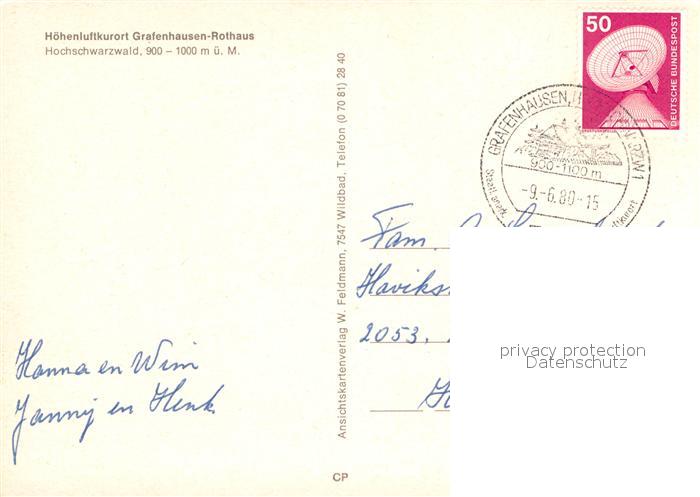 Höhenluftkurort Grafenhausen-Rothaus
Hochschwarzwald, 900 – 1000 m ü. M.
Ansichtskartenverlag W. Feldmann, 7547 Wildbad, Telefon (0 70 81) 28 40
50
DEUTSCHE BUNDESPOST
GRAFENHAUSEN,
900-1100 m
-9.-6.80-15
Fam.
2053.
privacy protection
Datenschutz
Hanna en Wim
Janny en Henk
CP